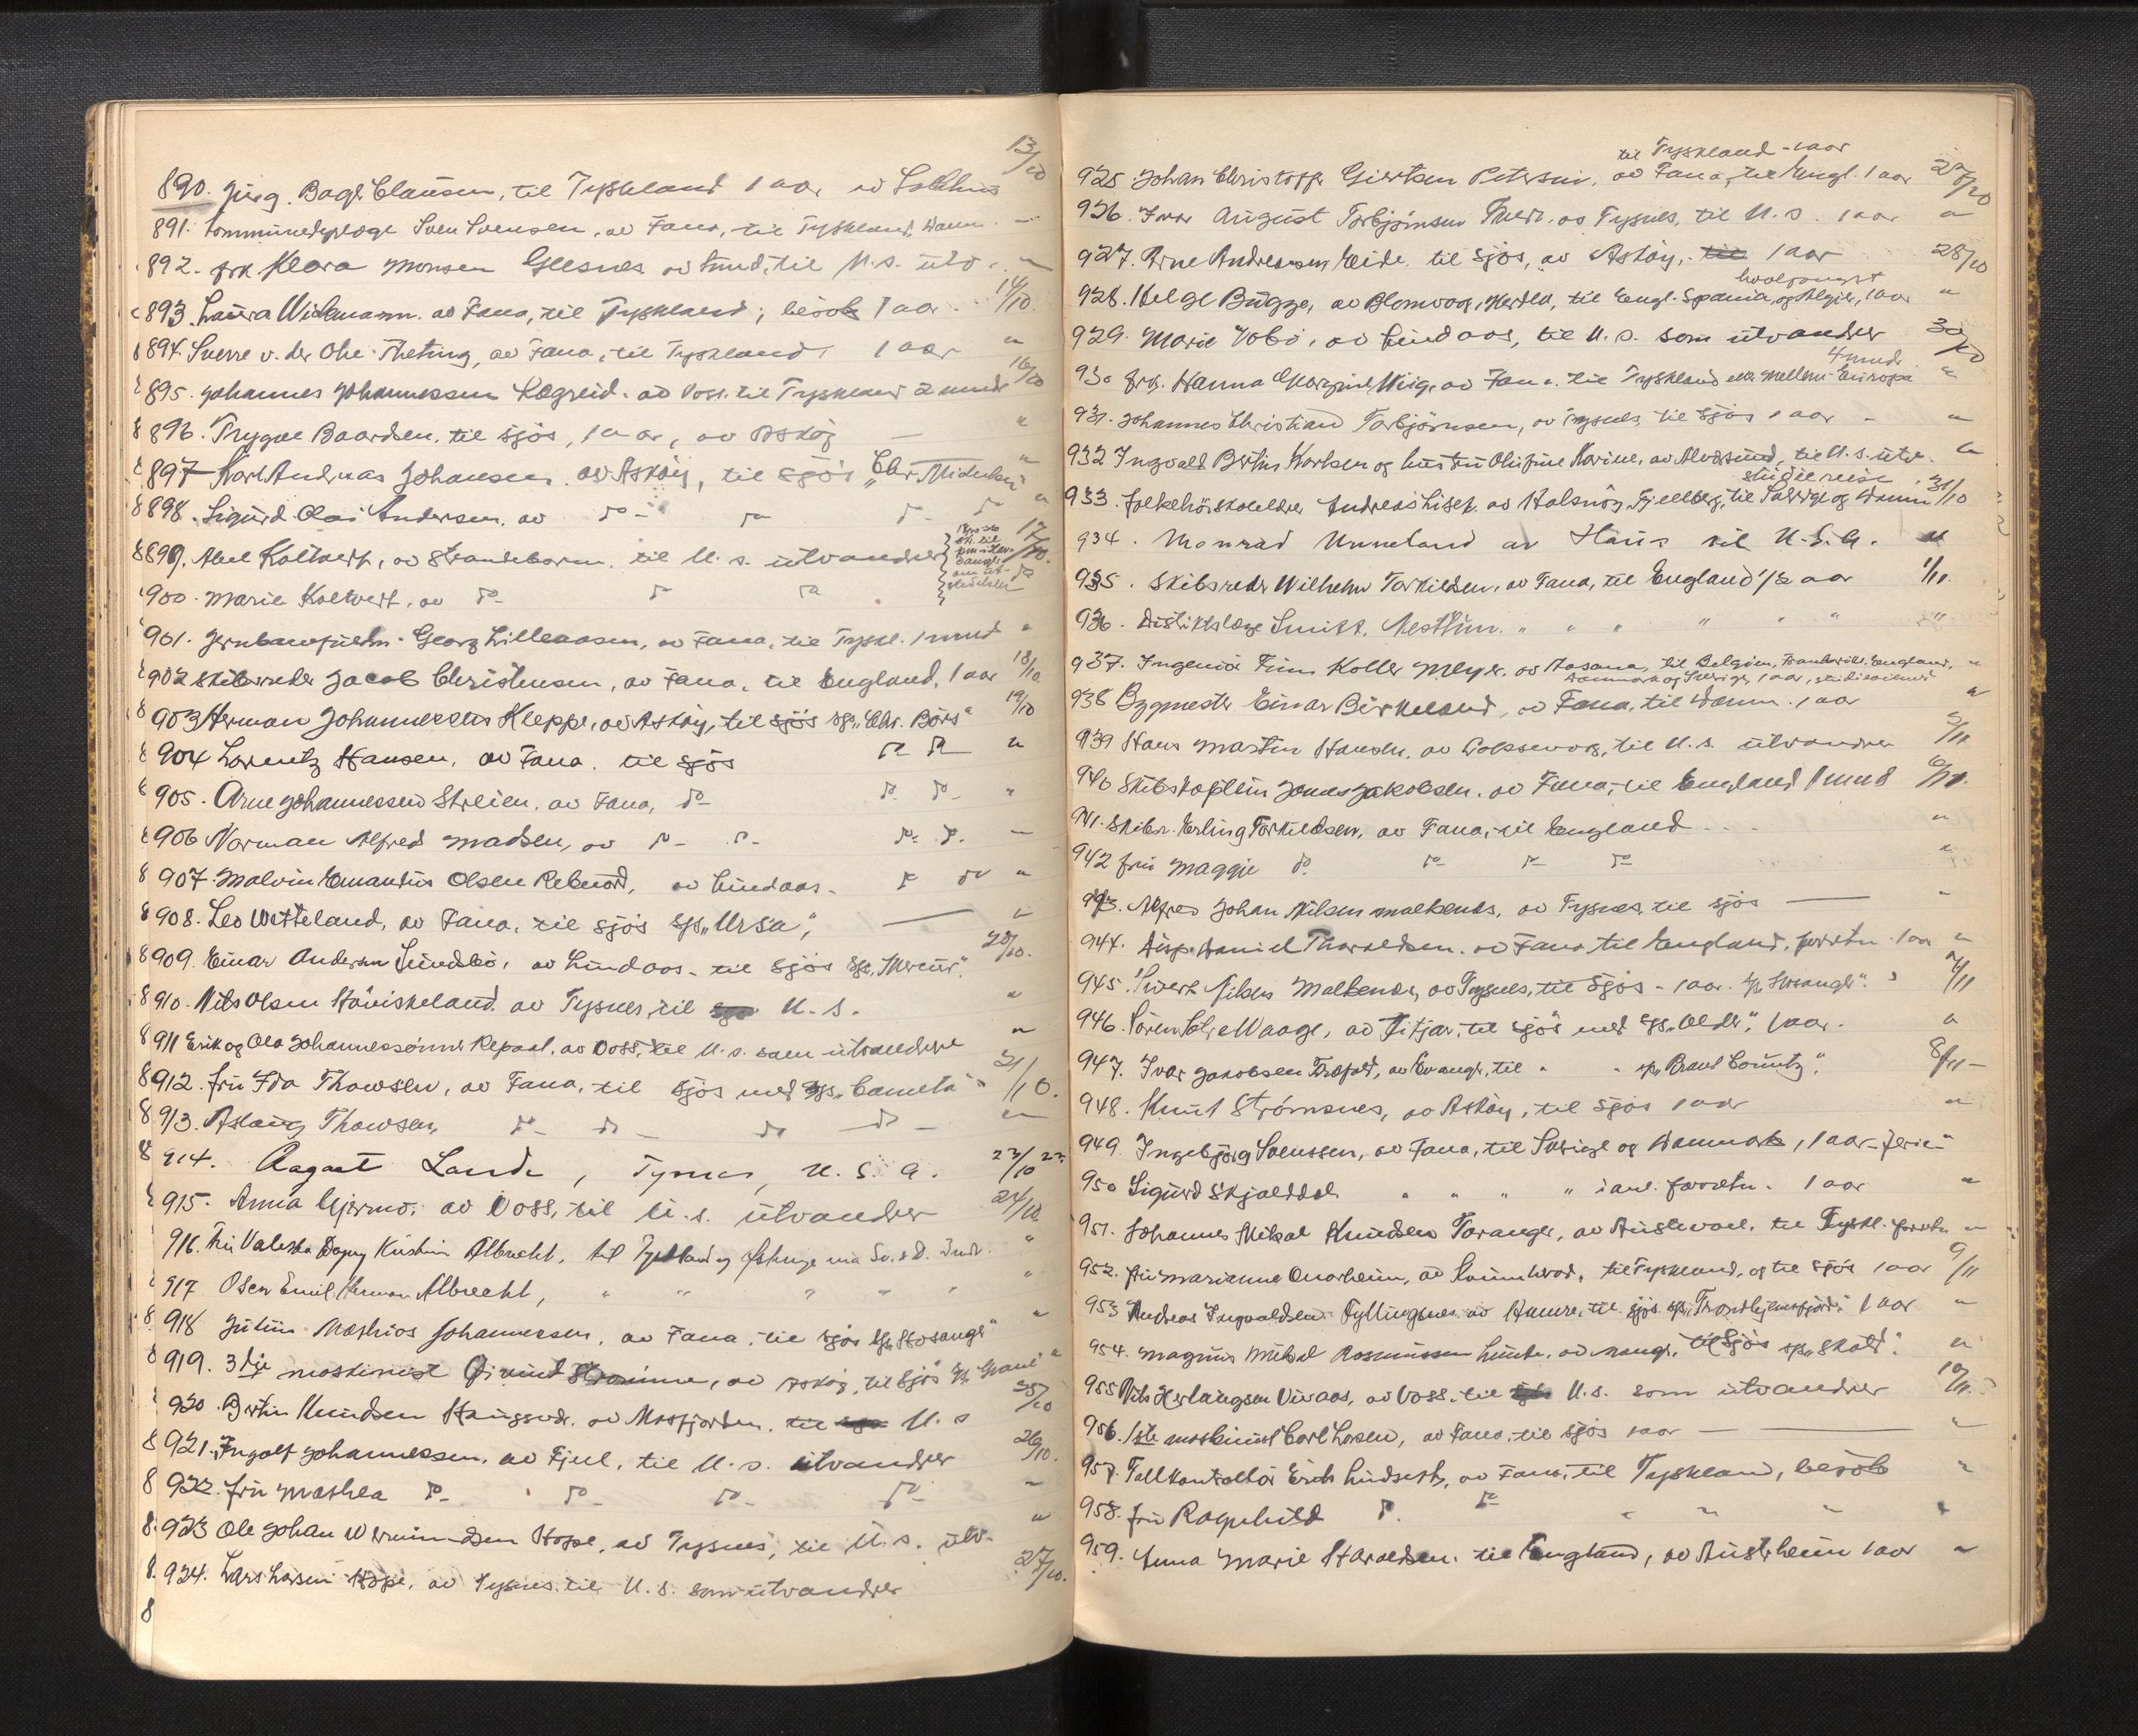 13/10
890. Jørg. Bagh Clausen, til Tyskland 1 aar av
891. Sven Svensen, av Fana, til Tyskland, Danm. —
892. frk Klara Monsen av Sund, til U.S. utv. "
893. Laura Wickmann. av Fana, til Tyskland, besök 1 aar. 14/10.
894. Sverre v. der Ohe Theting, av Fana, til Tyskland, 1 aar "
895. Johannes Johannessen Løgreid. av Voss. til Tyskland 2 mndr 16/10
896. Trygve Baardsen. til sjös, 1 aar, av Asköy — "
897 Karl Andreas Johansen. av Asköy, til sjös "Chr. Michelsen" "
898. Sigurd Olai Andersen. av do - do do do "
899. Abel Koltveit, av Strandebarm. til U.S. utvandrer 17/10.
900. Marie Koltveit, av do do do do
901. Georg Lilleaasen, av Fana, til Tyskl. 1 mnd "
902 Skibsreder Jacob Christensen, av Fana. til England. 1 aar 18/10
903 Herman Johannessen Kleppe, av Asköy, til sjös s/s "Chr. Börs" 19/10
904 Lorentz Hansen, av Fana. til sjös do do "
905. Arne Johannessen Streien. av Fana, do do. do. "
906 Norman Alfred Madsen, av do - do - do. do. —
907. Malvin Emantius Olsen Rebnord, av Lindaas - do do "
908. Leo Wetteland, av Fana, til sjös s/s "Ursa", — "
909. Einar Andersen Lindsbö, av Lindaas - til sjös s/s "Mercur". 20/10.
910. Nils Olsen Höviskeland. av Tysnes, til U.S. "
911 Erik og Ola Johannessönner Repaal, av Voss, til U.S. som utvandrere "
912. fru Ida Thowsen, av Fana, til sjös med s/s "Cometa" 21/10.
913. Aslaug Thowsen, do - do - do do - "
914. Aagaat Lande, Tysnes, U.S.A. 23/10 22.
915. Anna Gjermo. av Voss, til U.S. utvandrer 24/10
916. Fru Valeska Dagny Kristine Albrecht, til Tyskland og "
917 Oscar Emil Herman Albrecht, " " " " " "
918 Julius Mathias Johannessen. av Fana. til sjös s/s "Hosanger" "
919. 3dje maskinist Öivind Strömme, av Asköy, til sjös s/s "
920. Bertin Knudsen Haugsvdr. av Masfjorden. til U.S 25/10
921. Ingolf Johannessen. av Fjell, til U.S. utvandrer 26/10.
922. fru Mathea do - do - do - do - —
923 Ole Johan Wermundsen Hope, av Tysnes, til U.S. utv. "
924. Lars Larsen Hope, av Tysnes. til U.S. som utvandrer 27/10.
til Tyskland - 1 aar
925 Johan Christoffer Giertsen Petersen, av Fana, til Engl. 1 aar 27/10
926. Ivar August Torbjörnsen av Tysnes, til U.S. 1 aar "
927. Arne Andreassen Eide. til sjös, av Asköy, til 1 aar 28/10
hvalfangst
928. Helge Bugge, av Blomvaag, Herdla, til Engl. Spania og Algier, 1 aar "
929. Marie Vabö, av Lindaas, til U.S. som utvandrer 30/10
4 mndr.
930 frk. Hanna Margrete Wiig, av Fana. til Tyskland eller Mellem-Europa "
931. Johannes Christian Torbjörnsen, av Tysnes, til sjös 1 aar - "
932 Ingvald Bertin Karlsen og hustru Olufine Karine, av Alversund, til U.S. utv. "
studiereise
933. folkehöiskolelærer Andreas Liset. av Halsnöy, Fjellberg, til Sverige og Danm 31/10
934. Monrad Unneland av Haus til U.S.A. "
935. Skibsreder Wilhelm Torkildsen. av Fana, til England 1/2 aar 1/11.
936. Distriktslæge Smitt. Nesttun. " " " " " " "
937. Ingeniör Finn Koller Meyer. av Aasane, til Belgien, Frankrike, England, "
Danmark og Sverige, 1 aar, studieöiemed
938 Bygmester Einar Birkeland, av Fana, til Danm. 1 aar "
939 Hans Martin Hansen, av Laksevaag, til U.S. utvandrer 3/11
940 Skibskaptein Jonas Jakobsen. av Fana, til England 1 mnd 6/11.
941. Skibsr. Erling Torkildsen, av Fana, til England - - - "
942 fru Maggie do. do do do "
943. Alfred Johan Nilsen Malkenes, av Tysnes, til sjös — "
944. Disp. Daniel Thoraldsen. av Fana til England, forretn. 1 aar "
945. Sivert Nilsen Malkenes, av Tysnes, til Sjös - 1 aar. s/s "Hosanger". 7/11
946. Sören Waage, av Fitjar, til sjös med s/s "Alda", 1 aar. "
947. Ivar Jakobsen av Evanger, til " " s/s "Brant County". 8/11 -
948. Knut Strömsnes, av Asköy, til sjös 1 aar "
949. Ingebjörg Svenssen, av Fana, til Sverige og Danmark, 1 aar - ferie - "
950 Sigurd Skjelddal " " " " i anl. forretn. 1 aar "
951. Johannes Mikal Knudsen Toranger, av Austevoll. til Tyskl. forretn "
952. fru Marianne Onarheim, av Kvinnherad, til Tyskland, og til sjös 1 aar 9/11
953 Andreas Ingvaldsen Fyllingsnes. av Hamre, til sjös. s/s "Trondhjemsfjord" 1 aar "
954. Magnus Mikal Rasmussen Lunde. av Manger. til Sjös s/s "Skald". "
955 Nils Herlaugsen Vivaas, av Voss. til U.S. som utvandrer 10/11.
956. 1ste maskinist Carl Larsen, av Fana, til sjös 1 aar — "
957. Tollkontrollör Erik Lindseth, av Fana, til Tyskland, besök "
958. fru Ragnhild do. do - " " " "
959. Anna Marie Haraldsen. til England, av Austrheim 1 aar "